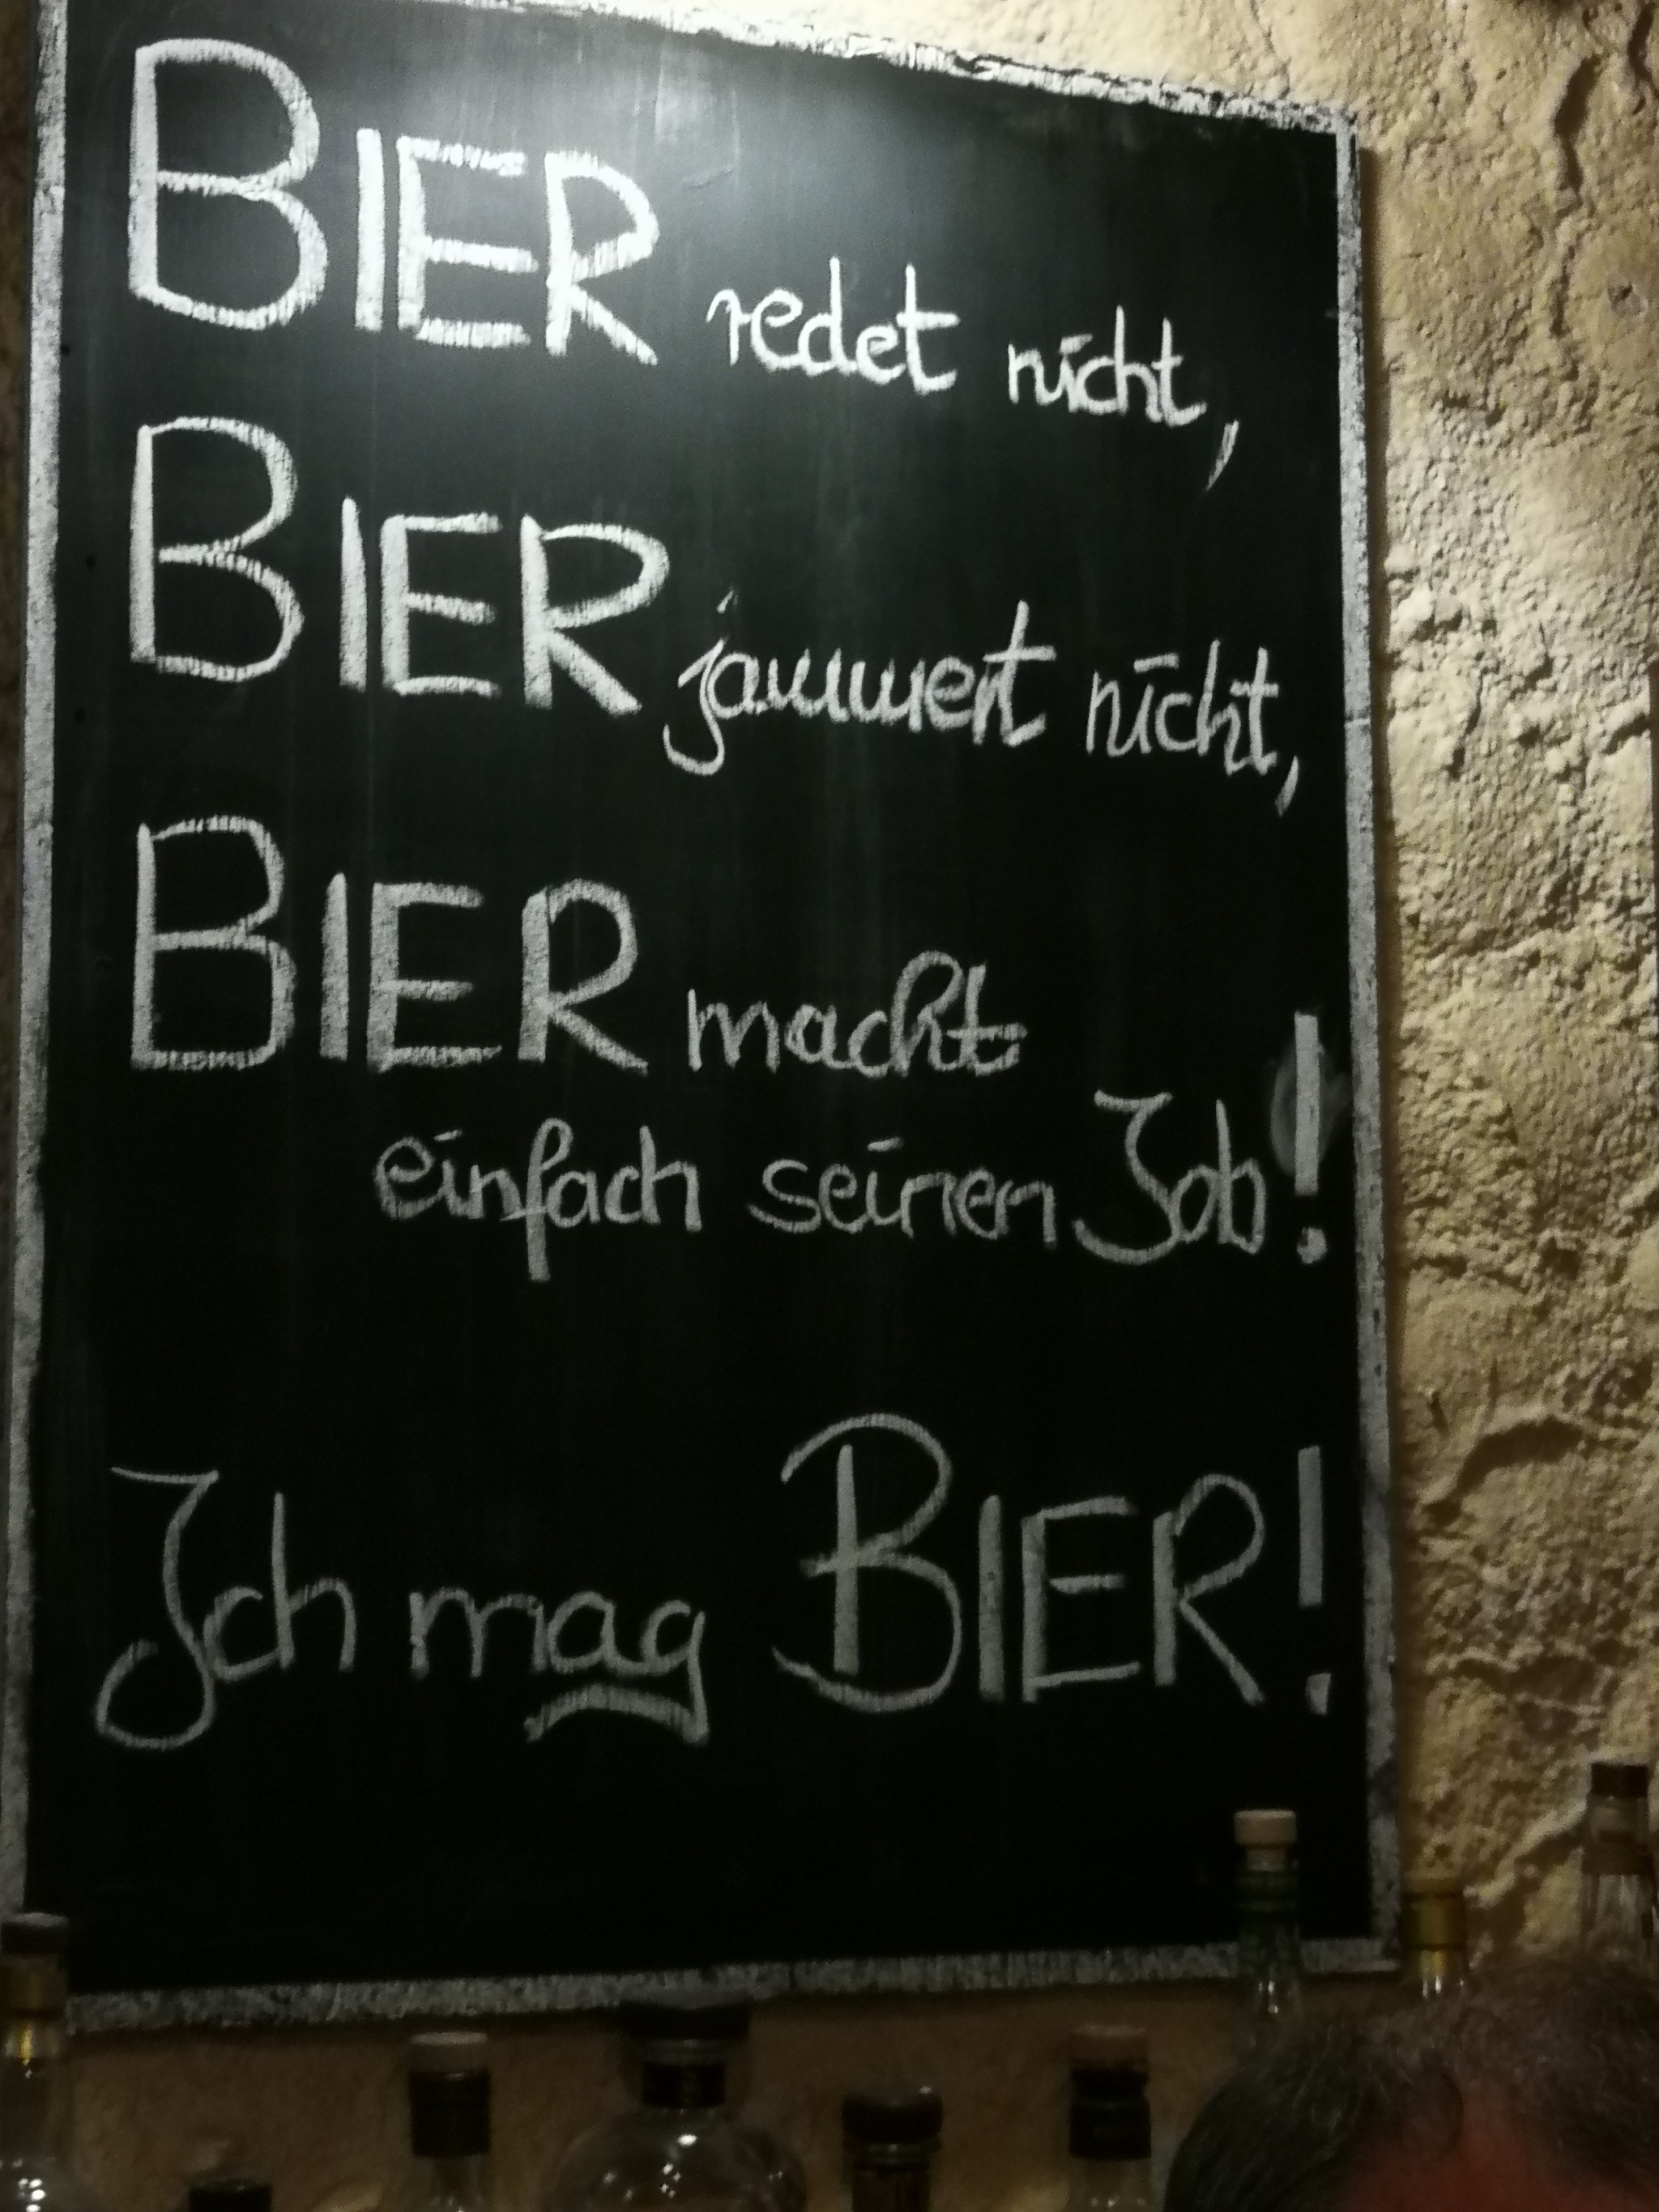 BIER redet nicht,
BIER jammert nicht,
BIER macht
einfach seinen Job!
Ich mag BIER!